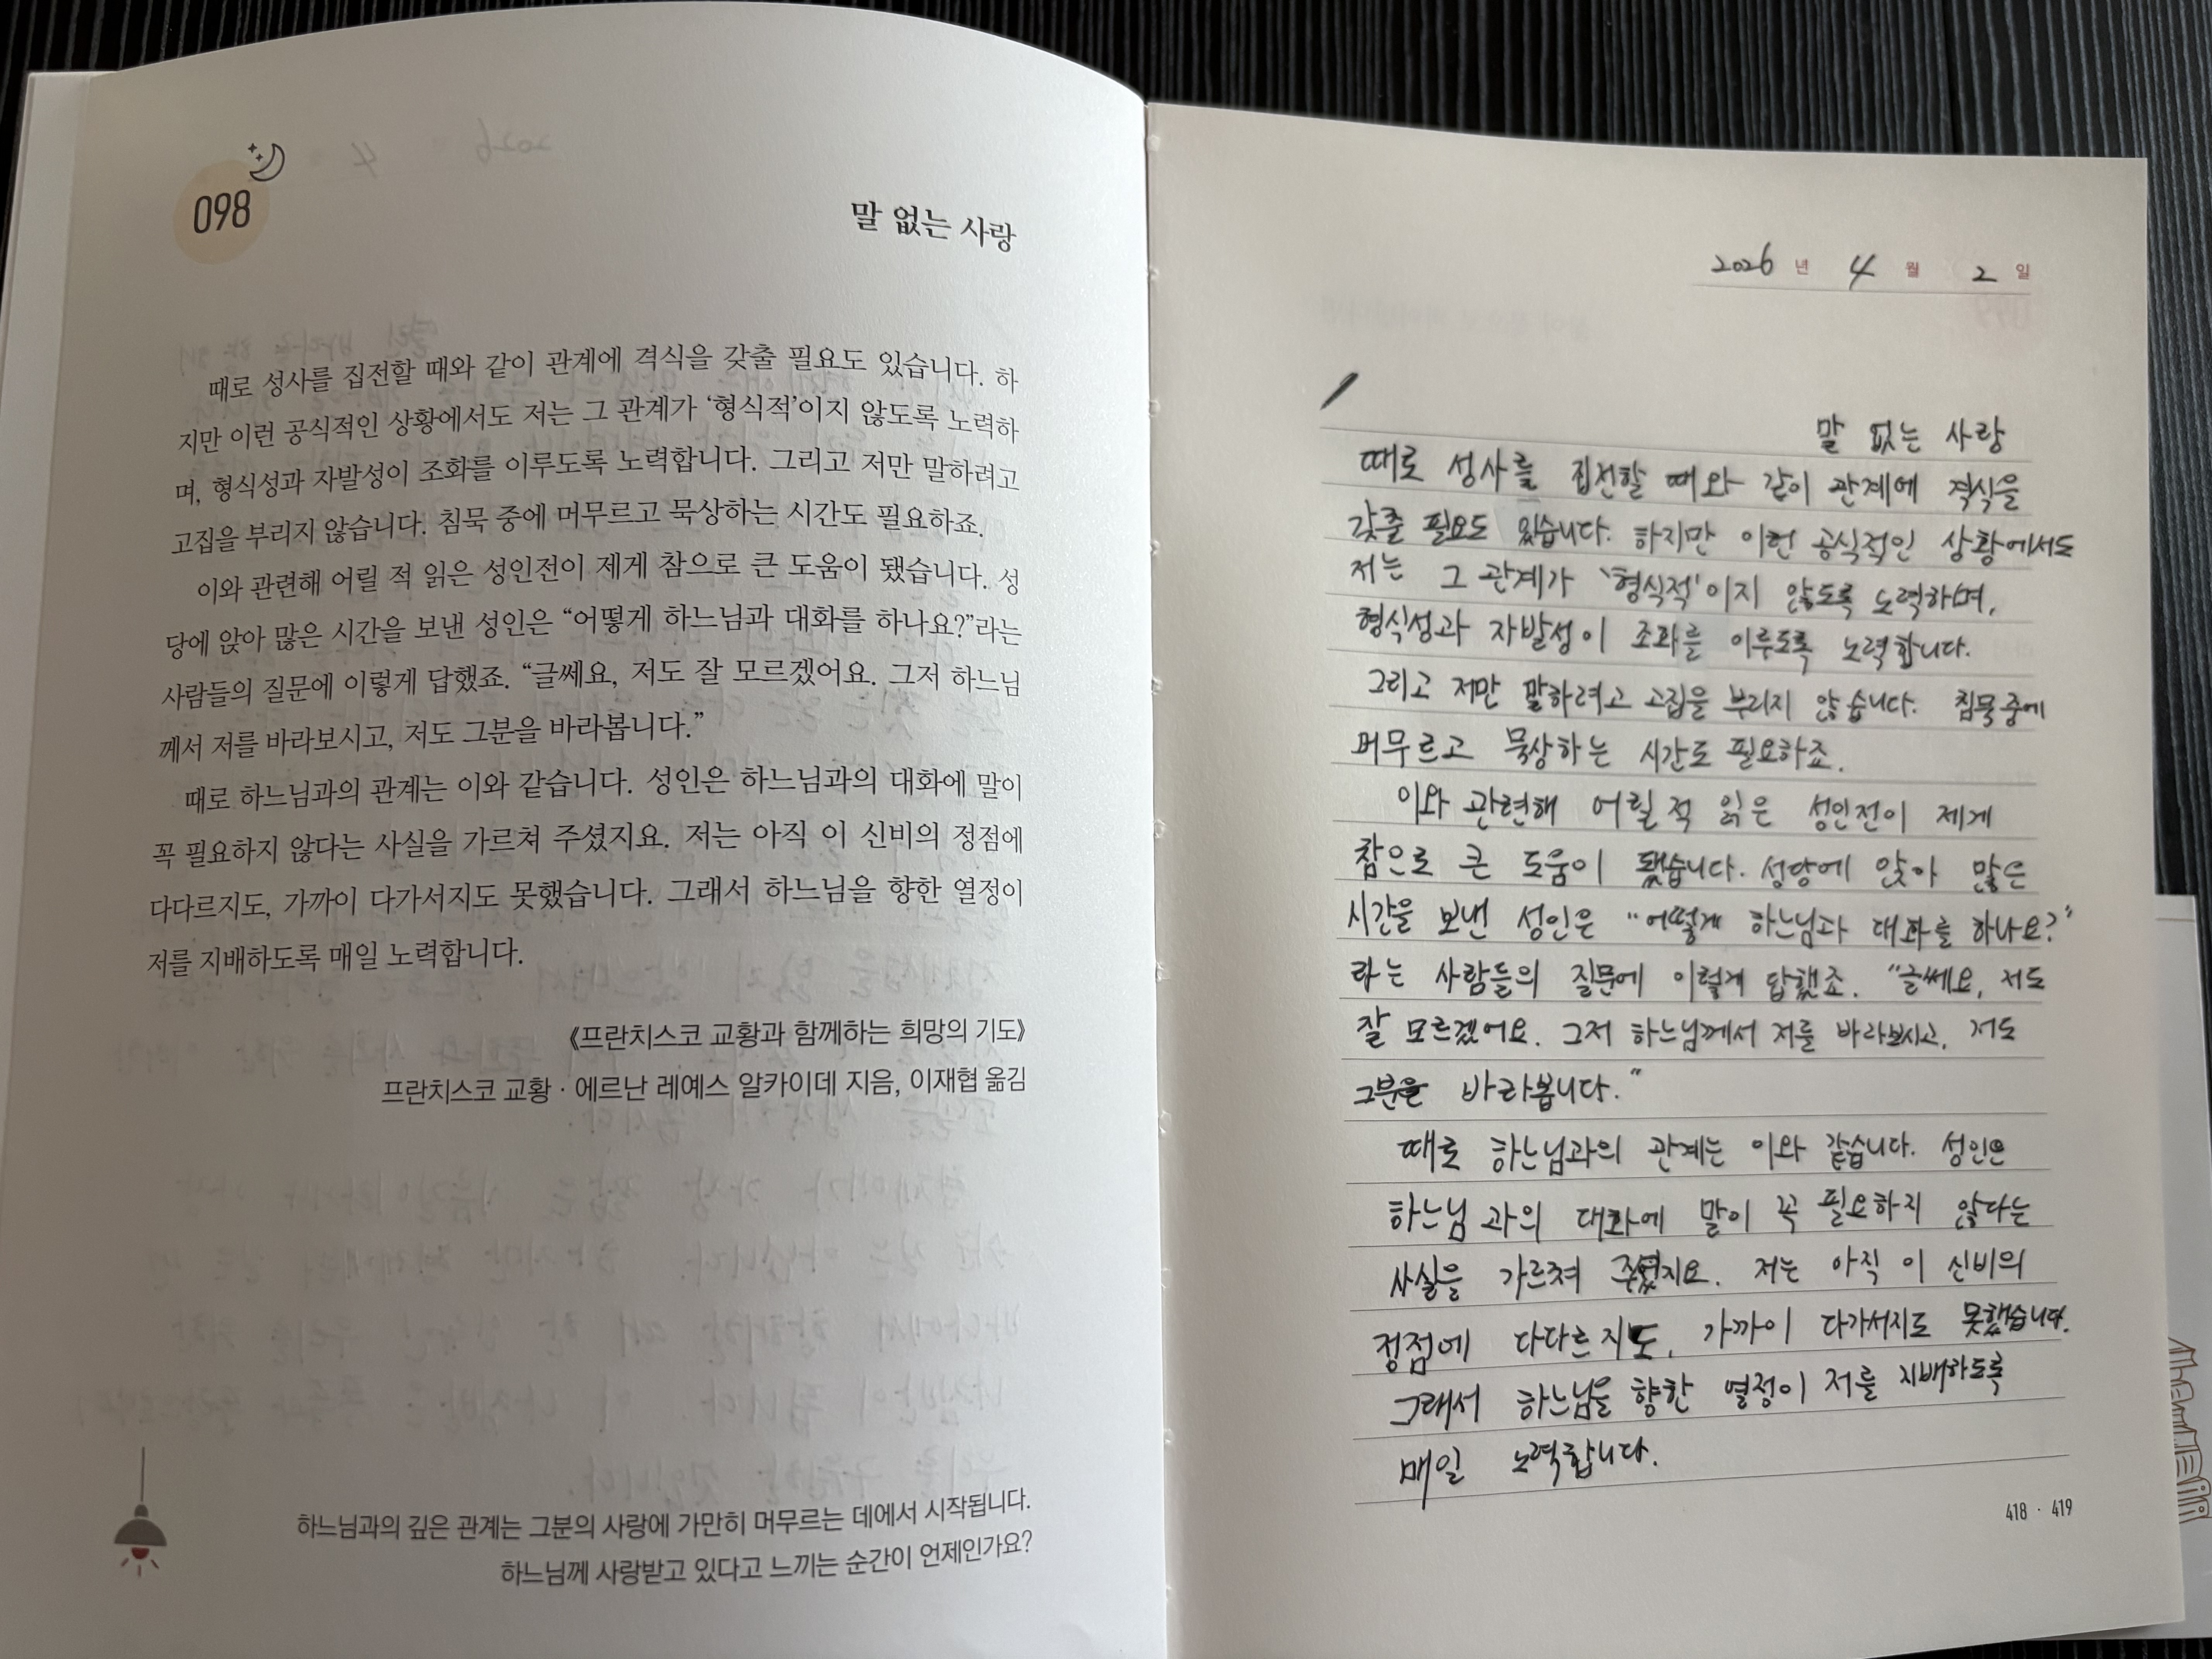 098
말 없는 사랑
때로 성사를 집전할 때와 같이 관계에 격식을 갖출 필요도 있습니다. 하
지만 이런 공식적인 상황에서도 저는 그 관계가 ‘형식적’이지 않도록 노력하
며, 형식성과 자발성이 조화를 이루도록 노력합니다. 그리고 저만 말하려고
고집을 부리지 않습니다. 침묵 중에 머무르고 묵상하는 시간도 필요하죠.
이와 관련해 어릴 적 읽은 성인전이 제게 참으로 큰 도움이 됐습니다. 성
당에 앉아 많은 시간을 보낸 성인은 “어떻게 하느님과 대화를 하나요?”라는
사람들의 질문에 이렇게 답했죠. “글쎄요, 저도 잘 모르겠어요. 그저 하느님
께서 저를 바라보시고, 저도 그분을 바라봅니다.”
때로 하느님과의 관계는 이와 같습니다. 성인은 하느님과의 대화에 말이
꼭 필요하지 않다는 사실을 가르쳐 주셨지요. 저는 아직 이 신비의 정점에
다다르지도, 가까이 다가서지도 못했습니다. 그래서 하느님을 향한 열정이
저를 지배하도록 매일 노력합니다.
《프란치스코 교황과 함께하는 희망의 기도》
프란치스코 교황 · 에르난 레예스 알카이데 지음, 이재협 옮김
하느님과의 깊은 관계는 그분의 사랑에 가만히 머무르는 데에서 시작됩니다.
하느님께 사랑받고 있다고 느끼는 순간이 언제인가요?
2026 년 4 월 2 일
말 없는 사랑
때로 성사를 집전할 때와 같이 관계에 격식을
갖출 필요도 있습니다. 하지만 이런 공식적인 상황에서도
저는 그 관계가 ‘형식적’이지 않도록 노력하며,
형식성과 자발성이 조화를 이루도록 노력합니다.
그리고 저만 말하려고 고집을 부리지 않습니다. 침묵 중에
머무르고 묵상하는 시간도 필요하죠.
이와 관련해 어릴 적 읽은 성인전이 제게
참으로 큰 도움이 됐습니다. 성당에 앉아 많은
시간을 보낸 성인은 “어떻게 하느님과 대화를 하나요?”
라는 사람들의 질문에 이렇게 답했죠. “글쎄요, 저도
잘 모르겠어요. 그저 하느님께서 저를 바라보시고, 저도
그분을 바라봅니다.”
때로 하느님과의 관계는 이와 같습니다. 성인은
하느님과의 대화에 말이 꼭 필요하지 않다는
사실을 가르쳐 주셨지요. 저는 아직 이 신비의
정점에 다다르지도, 가까이 다가서지도 못했습니다.
그래서 하느님을 향한 열정이 저를 지배하도록
매일 노력합니다.
418 · 419